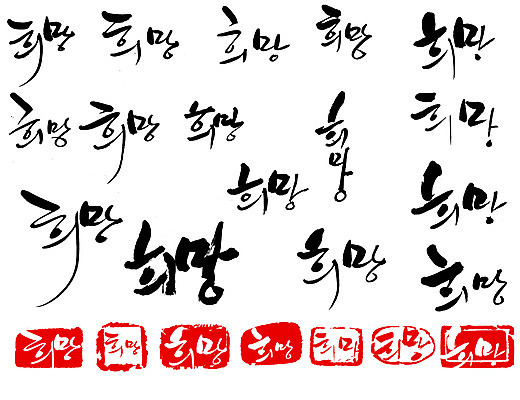 희망 희망 희망 희망 희망
희망 희망 희망 희망 희망
희망 희망
희망 희망 희망 희망
희망 희망 희망 희망 희망 희망 희망